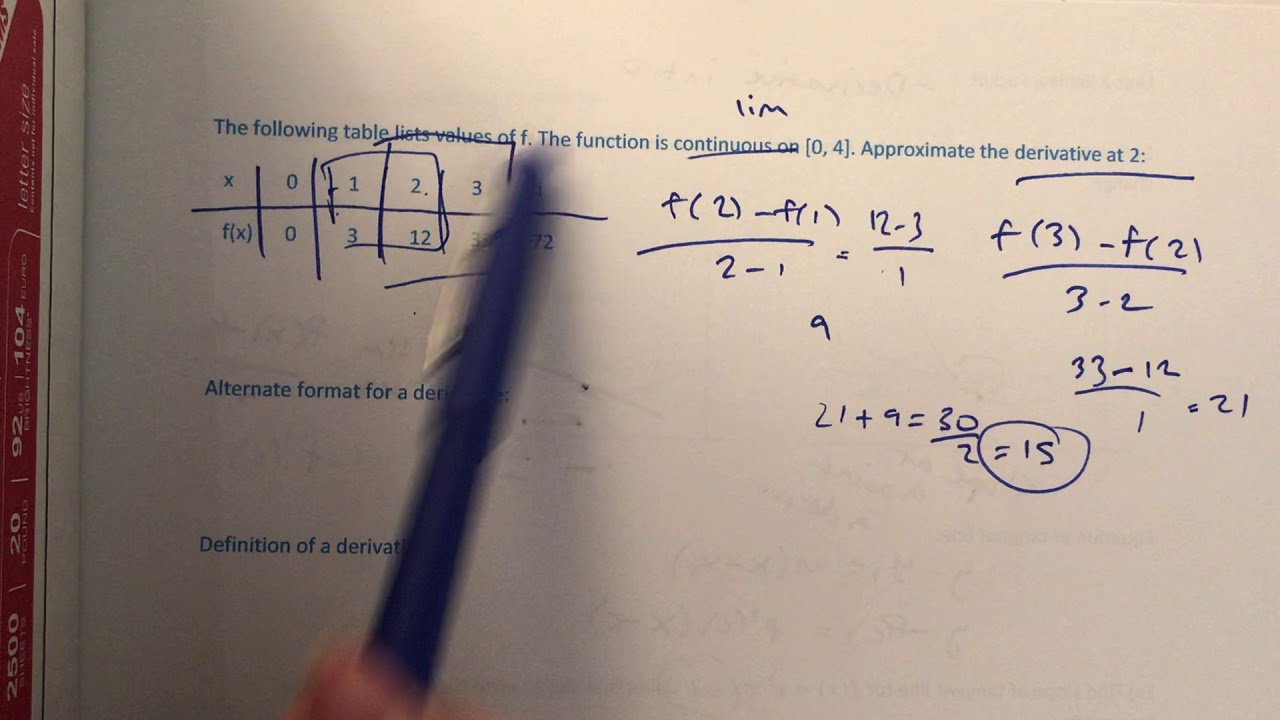 lim
The following table lists values of f. The function is continuous on [0, 4]. Approximate the derivative at 2:
x 0 1 2. 3
f(x) 0 3 12 72
f(2) - f(1)
2 - 1
= 12-3
1
9
f(3) - f(2)
3 - 2
33 - 12
1
= 21
21 + 9 = 30
2
= 15
Alternate format for a
Definition of a
letter size
104 EURO
BRIGHTNESS*
92 US
20 POUND
2500 SHEETS